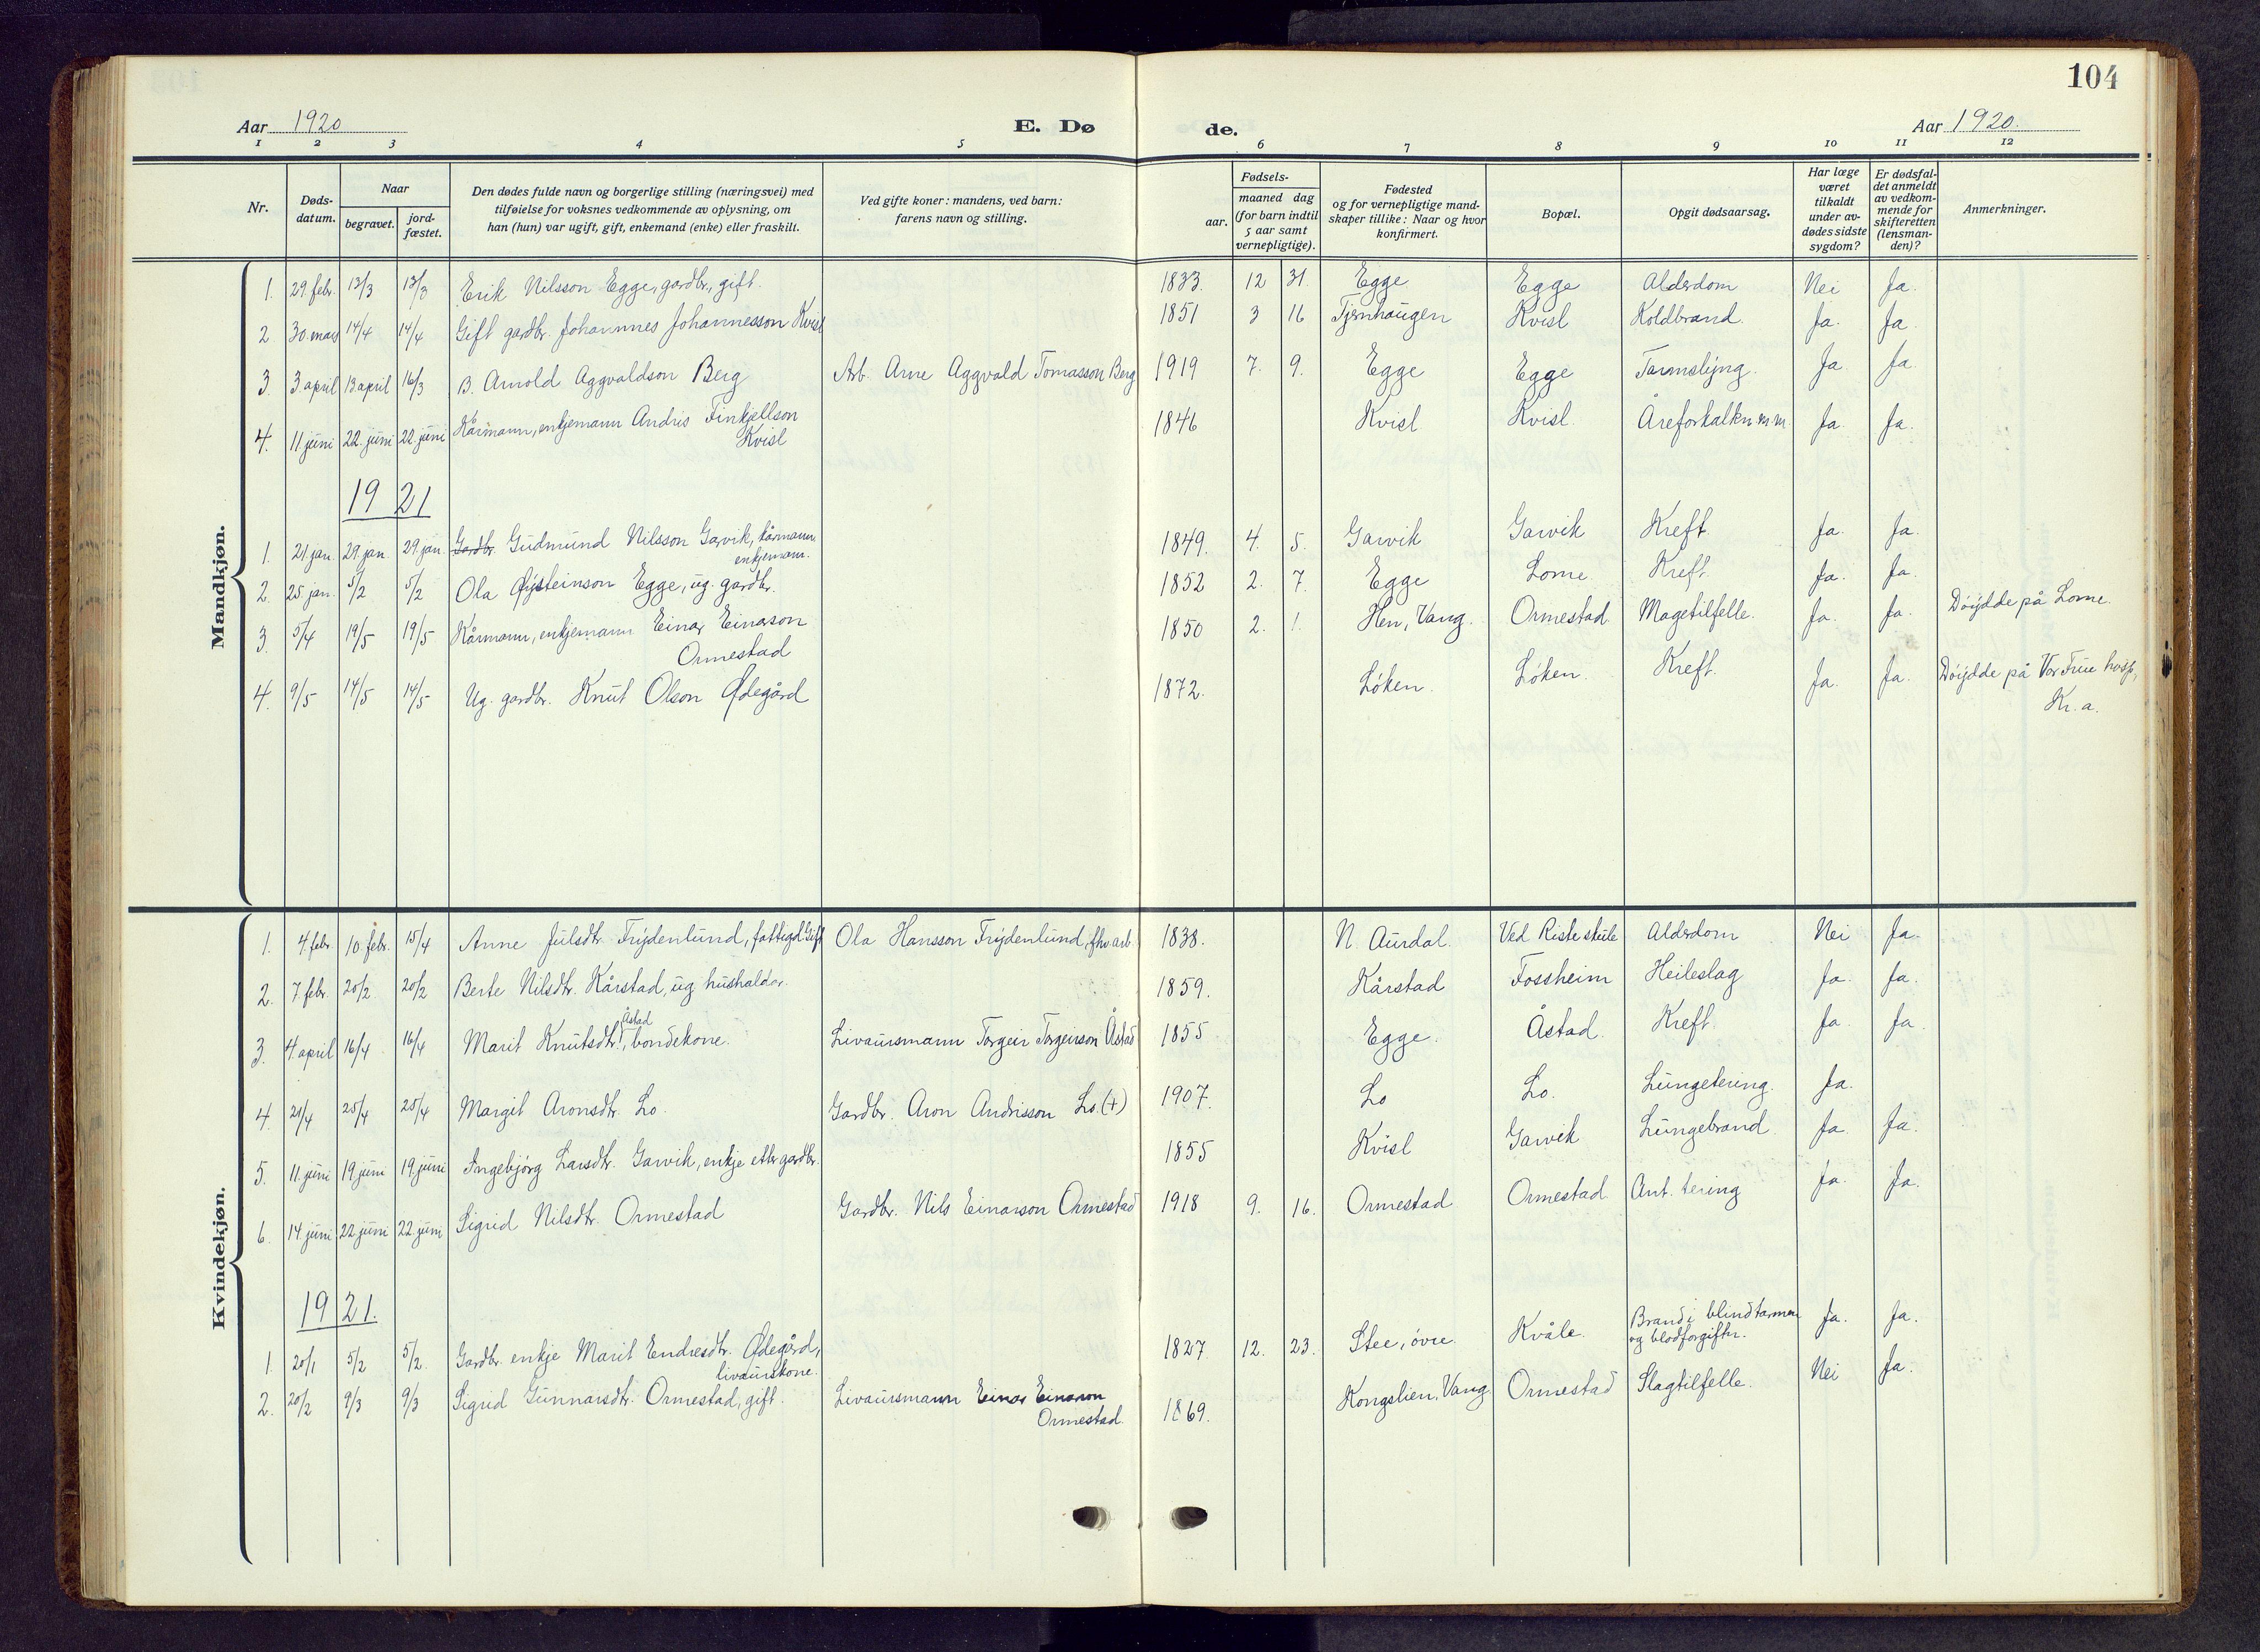 104
Aar 1920
E. Dø
de.
Aar 1920.
1 2 3 4 5 6 7 8 9 10 11 12
Nr.
Døds-
datum.
Naar
begravet.
jord-
fæstet.
Den dødes fulde navn og borgerlige stilling (næringsvei) med
tilføielse for voksnes vedkommende av oplysning, om
han (hun) var ugift, gift, enkemand (enke) eller fraskilt.
Ved gifte koner: mandens, ved barn:
farens navn og stilling.
Fødsels-
aar.
maaned dag
(for barn indtil
5 aar samt
vernepligtige).
Fødested
og for vernepligtige mand-
skaper tillike: Naar og hvor
konfirmert.
Bopæl.
Opgit dødsaarsag.
Har læge
været
tilkaldt
under av-
dødes sidste
sygdom?
Er dødsfal-
det anmeldt
av vedkom-
mende for
skifteretten
(lensman-
den)?
Anmerkninger.
Mandkjøn.
1. 29. febr. 13/3 13/3 Erik Nilsson Egge, gardbr., gift. 1833. 12 31. Egge Egge Alderdom Nei Ja.
2 30. mars 14/4 14/4 Gift gardbr. Johannes Johannesson Kvisl 1851 3 16 Tjernhaugen Kvisl Koldbrand. Ja. Ja.
3. 3 april 13 april 16/3 B. Arnold Aggvaldson Berg Arb. Arne Aggvald Tomasson Berg 1919 7. 9. Egge Egge Tarmslyng. Ja. Ja.
4. 11 juni 22. juni 22. juni Kårmann, enkjemann Andris Finkjellson
Kvisl 1846 Kvisl Kvisl Åreforkalkn m.m. Ja. Ja.
1921
1. 21. jan. 29. jan. 29. jan. Gardbr. Gudmund Nilsson Garvik, kårmann,
enkjemann. 1849. 4. 5. Garvik Garvik Kreft. Ja. Ja.
2. 25 jan. 5/2 5/2 Ola Øysteinson Egge, ug. gardbr. 1852 2. 7. Egge Lome Kreft. Ja. Ja.
3. 5/4 19/5 19/5 Kårmann, enkjemann Einar Einarson
Ormestad 1850 2. 1. Hen, Vang. Ormestad. Magetilfelle. Ja. Ja. Döydde på Lome.
4. 9/5 14/5 14/5 Ug. gardbr. Knut Olson Ødegård 1872. Löken. Löken. Kreft. Ja. Ja. Döydde på Vor Frue hosp.,
Kr.a.
Kvindekjøn.
1. 4. febr. 10. febr. 15/4 Anne Julsdtr. Frydenlund, fattigd. Gift Ola Hansson Frydenlund, fhv. arb. 1838. N. Aurdal. Ved Riste skule Alderdom Nei Ja.
2. 7 febr. 20/2. 20/2 Berte Nilsdtr. Kårstad, ug. hushalder. 1859. Kårstad Fossheim Heileslag Ja. Ja.
Åstad
3. 4 april 16/4 16/4 Marit Knutsdtr., bondekone. Livaursmann Torgeir Torgeirson Åstad 1855 Egge. Åstad. Kreft. Ja. Ja.
4. 21/4 25/4 25/4 Margit Aronsdtr. Lo. Gardbr. Aron Andrisson Lo (+) 1907. Lo Lo. Lungetering. Ja.
5. 11. juni 19 juni 19. juni Ingebjörg Larsdtr. Garvik, enkje etter gardbr. 1855 Kvisl Garvik Lungebrand. Ja. Ja.
6. 14 juni 22 juni 22. juni Sigrid Nilsdtr. Ormestad Gardbr. Nils Einarson Ormestad 1918 9. 16. Ormestad Ormestad Ant. tering Ja. Ja.
1921.
1. 20/1 5/2 5/2. Gardbr. enkje Marit Endresdtr. Ødegård,
livaurskone. 1827. 12. 23. Stee, övre Kvåle. Brand i blindtarmen
og blodforgiftn. Ja. Ja.
2. 20/2 9/3 9/3 Sigrid Gunnarsdtr. Ormestad, gift. Livaursmann Einar Einarson
Ormestad. 1869. Kongslien, Vang Ormestad Slagtilfelle. Nei Ja.